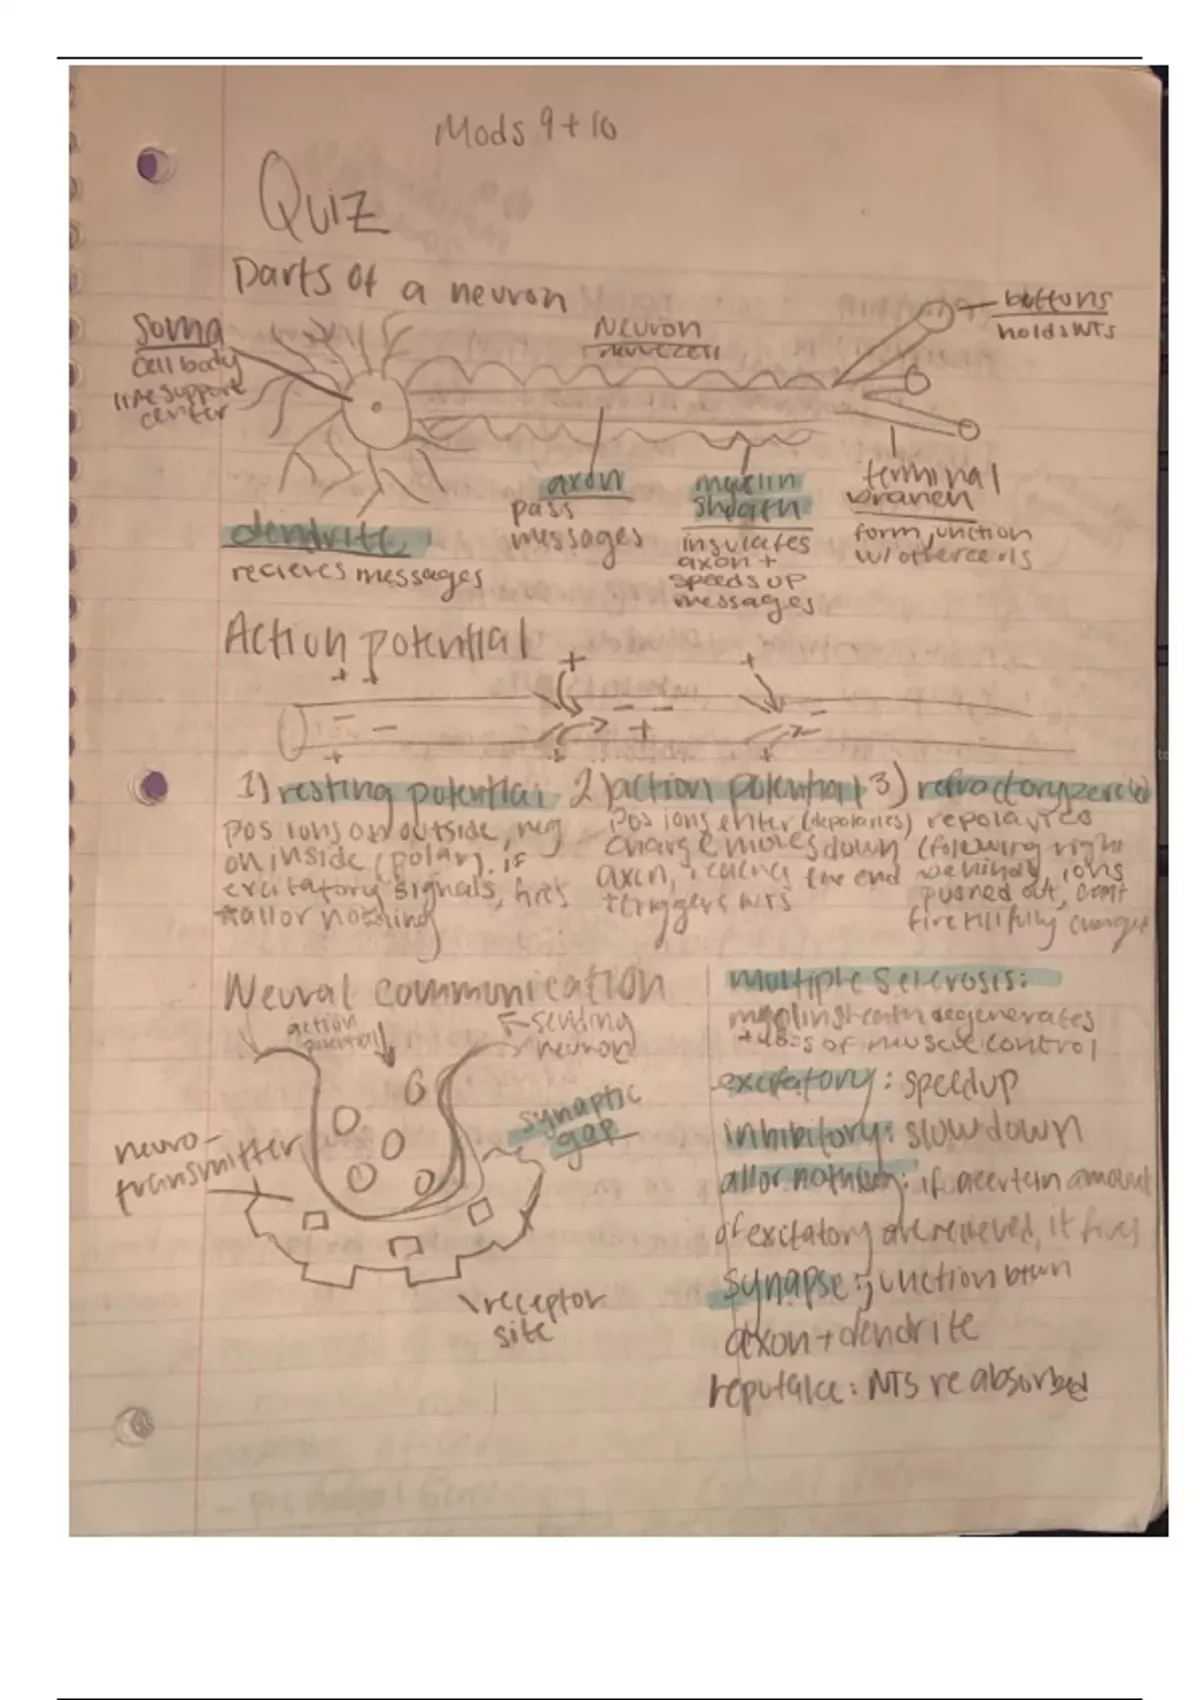 Mods 9 + 10
Quiz
Parts of a neuron
soma
cell body
life support
center
Neuron
nerve cell
buttons
holds NTs
dendrite
recieves messages
axon
pass
messages
myelin
sheath
insulates
axon +
speeds up
messages
terminal
branch
form junction
w/ other cells
Action potential
+ +
+
+
- -
- -
+
-
+
+
+
1) resting potential
pos ions on outside, neg
on inside (polar). if
excitatory signals, fires
*all or nothing
2) action potential
pos ions enter (depolarizes)
charge moves down
axon, reaches the end
triggers NTs
3) refractory period
repolarizes
(following right
behind), ions
pushed out, cant
fire till fully charged
Neural communication
action
potential
sending
neuron
synaptic
gap
neuro-
transmitter
receptor
site
multiple sclerosis:
myelin sheath degenerates
+ loss of muscle control
excitatory: speed up
inhibitory: slow down
all or nothing: if a certain amount
of excitatory are recieved, it fires
synapse: junction btwn
axon + dendrite
reputake: NTs reabsorbed